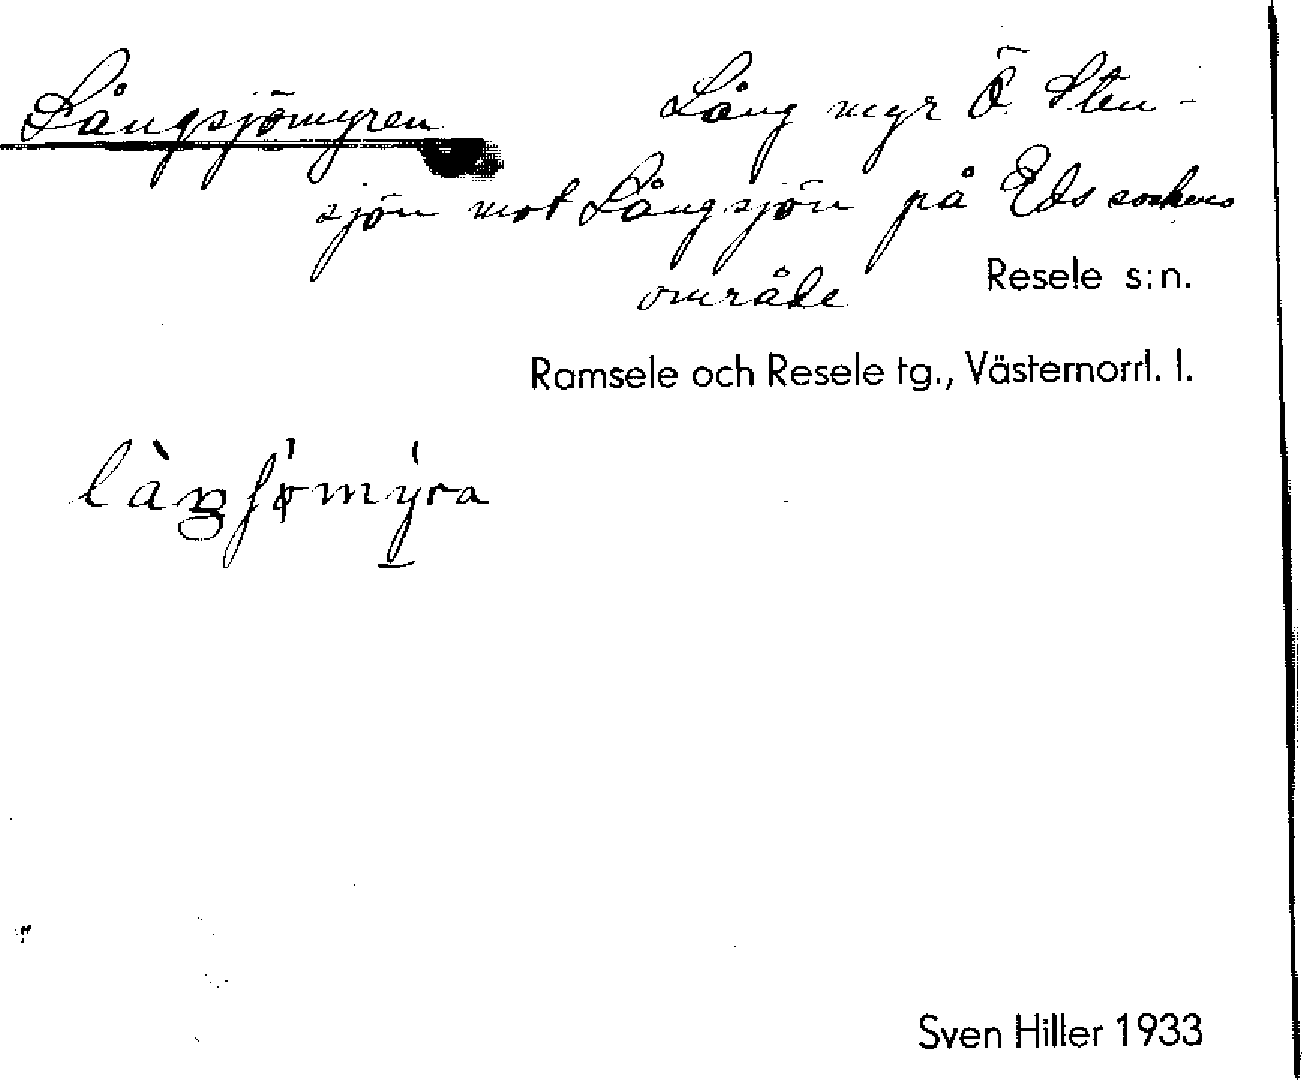 Långsjömyren
Lång myr Ö Sten-
sjön mot Långsjön på Eds sockens
område
Resele s:n.
Ramsele och Resele tg., Västernorrl. l.
Sven Hiller 1933